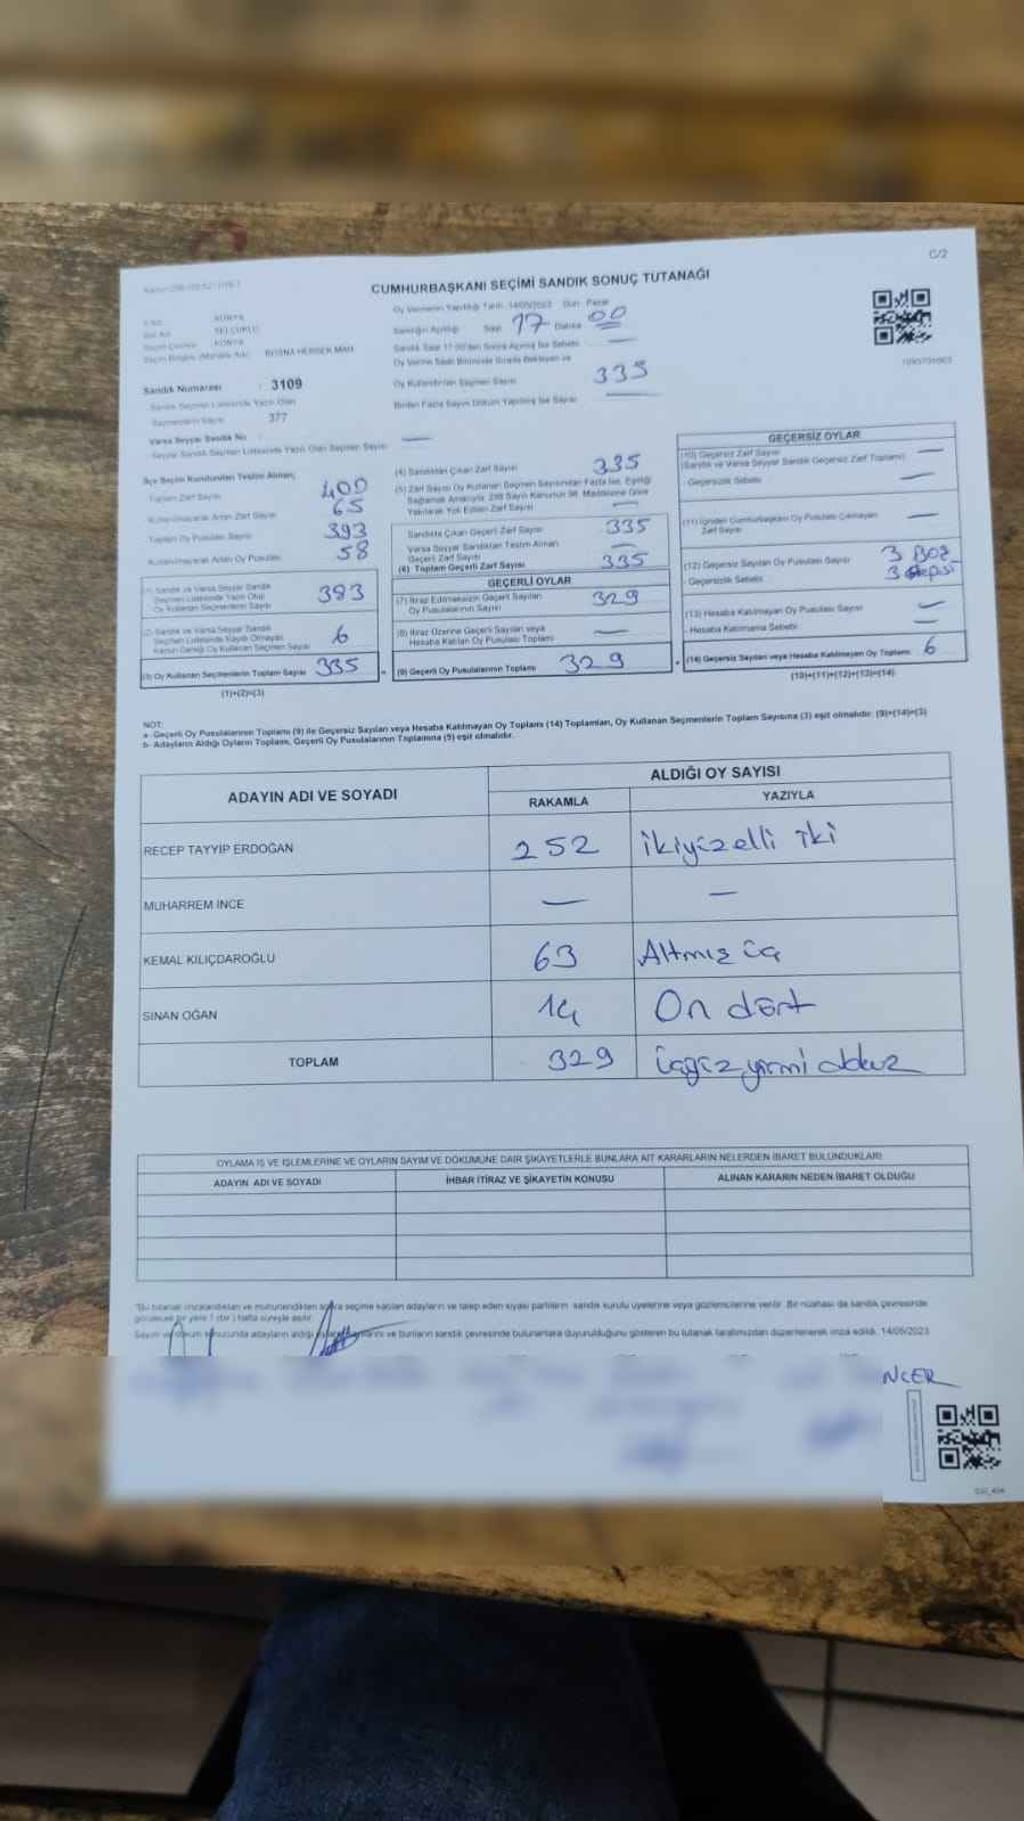 C/2
CUMHURBAŞKANI SEÇİMİ SANDIK SONUÇ TUTANAĞI
Oy Vermenin Yapıldığı Tarih: 14/05/2023 Gün: Pazar
KONYA
SELÇUKLU
KONYA
BOSNA HERSEK MAH.
Sandığın Açıldığı Saat 17 Dakika 00
Sandık Saat 17:00'den Sonra Açılmış İse Sebebi: —
Oy Kullandırılan Seçmen Sayısı 335
Birden Fazla Sayım Döküm Yapılmış İse Sayısı —
Sandık Numarası : 3109
Sandık Seçmen Listesinde Yazılı Olan
Seçmenlerin Sayısı 377
Varsa Seyyar Sandık No
Seyyar Sandık Seçmen Listesinde Yazılı Olan Seçmen Sayısı —
İlçe Seçim Kurulundan Teslim Alınan;
Toplam Zarf Sayısı 400
Kullanılmayarak Artan Zarf Sayısı 65
Toplam Oy Pusulası Sayısı 393
Kullanılmayarak Artan Oy Pusulası 58
(1) Sandık ve Varsa Seyyar Sandık
Seçmen Listesinde Yazılı Olup
Oy Kullanan Seçmenlerin Sayısı 393
(2) Sandık ve Varsa Seyyar Sandık
Seçmen Listesinde Kaydı Olmayan
Kanun Gereği Oy Kullanan Seçmen Sayısı 6
(3) Oy Kullanan Seçmenlerin Toplam Sayısı 335
(1)+(2)=(3)
(4) Sandıktan Çıkan Zarf Sayısı 335
(5) Zarf Sayısı Oy Kullanan Seçmen Sayısından Fazla İse, Eşitliği
Sağlamak Amacıyla 298 Sayılı Kanunun 98. Maddesine Göre
Yakılarak Yok Edilen Zarf Sayısı —
Sandıkta Çıkan Geçerli Zarf Sayısı 335
Varsa Seyyar Sandıktan Teslim Alınan
Geçerli Zarf Sayısı —
(6) Toplam Geçerli Zarf Sayısı 335
GEÇERLİ OYLAR
(7) İtiraz Edilmeksizin Geçerli Sayılan
Oy Pusulalarının Sayısı 329
(8) İtiraz Üzerine Geçerli Sayılan veya
Hesaba Katılan Oy Pusulası Toplamı —
(9) Geçerli Oy Pusulalarının Toplamı 329
GEÇERSİZ OYLAR
(10) Geçersiz Zarf Sayısı
(Sandık ve Varsa Seyyar Sandık Geçersiz Zarf Toplamı) —
Geçersizlik Sebebi —
(11) İçinden Cumhurbaşkanı Oy Pusulası Çıkmayan
Zarf Sayısı —
(12) Geçersiz Sayılan Oy Pusulası Sayısı 3 Boz
- Geçersizlik Sebebi 3 Hepsi
(13) Hesaba Katılmayan Oy Pusulası Sayısı —
- Hesaba Katılmama Sebebi —
(14) Geçersiz Sayılan veya Hesaba Katılmayan Oy Toplamı 6
(10)+(11)+(12)+(13)=(14)
NOT:
a- Geçerli Oy Pusulalarının Toplamı (9) ile Geçersiz Sayılan veya Hesaba Katılmayan Oy Toplamı (14) Toplamları, Oy Kullanan Seçmenlerin Toplam Sayısına (3) eşit olmalıdır. (9)+(14)=(3)
b- Adayların Aldığı Oyların Toplamı, Geçerli Oy Pusulalarının Toplamına (9) eşit olmalıdır.
ADAYIN ADI VE SOYADI ALDIĞI OY SAYISI
RAKAMLA YAZIYLA
RECEP TAYYİP ERDOĞAN 252 ikiyüzelli iki
MUHARREM İNCE — —
KEMAL KILIÇDAROĞLU 63 Altmış üç
SİNAN OĞAN 14 On dört
TOPLAM 329 üçyüz yirmi dokuz
OYLAMA İŞ VE İŞLEMLERİNE VE OYLARIN SAYIM VE DÖKÜMÜNE DAİR ŞİKAYETLERLE BUNLARA AİT KARARLARIN NELERDEN İBARET BULUNDUKLARI
ADAYIN ADI VE SOYADI İHBAR İTİRAZ VE ŞİKAYETİN KONUSU ALINAN KARARIN NEDEN İBARET OLDUĞU
"Bu tutanak imzalandıktan ve mühürlendikten sonra seçime katılan adayların ve talep eden siyasi partilerin sandık kurulu üyelerine veya gözlemcilerine verilir. Bir nüshası da sandık çevresinde
görülecek bir yere 1 (bir) hafta süreyle asılır.
Sayım ve döküm sonucunda adayların aldığı ve bunların sandık çevresinde bulunanlara duyurulduğunu gösteren bu tutanak tarafımızdan düzenlenerek imza edildi. 14/05/2023
NCER